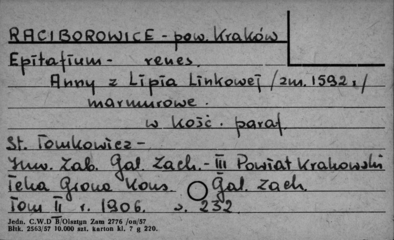 RACIBOROWICE - pow. Kraków
Epitafium - renes.
Anny z Lipia Linkowej /zm. 1592 r./
marmurowe.
w kość. paraf.
St. Tomkowicz -
Inw. Zab. Gal. Zach. - III Powiat Krakowski
Teka Grona Kons. Gal. Zach.
Tom II r. 1906. s. 232
Jedn. C.W.D B/Olsztyn Zam 2776 /on/57
Bltk. 2563/57 10.000 szt. karton kl. ? g 220.